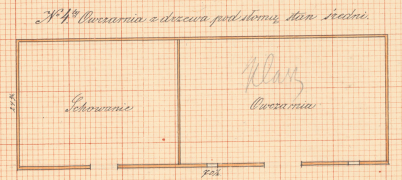 № 4ty Owczarnia z drzewa pod słomą, stan średni.
Schowanie
Owczarnia